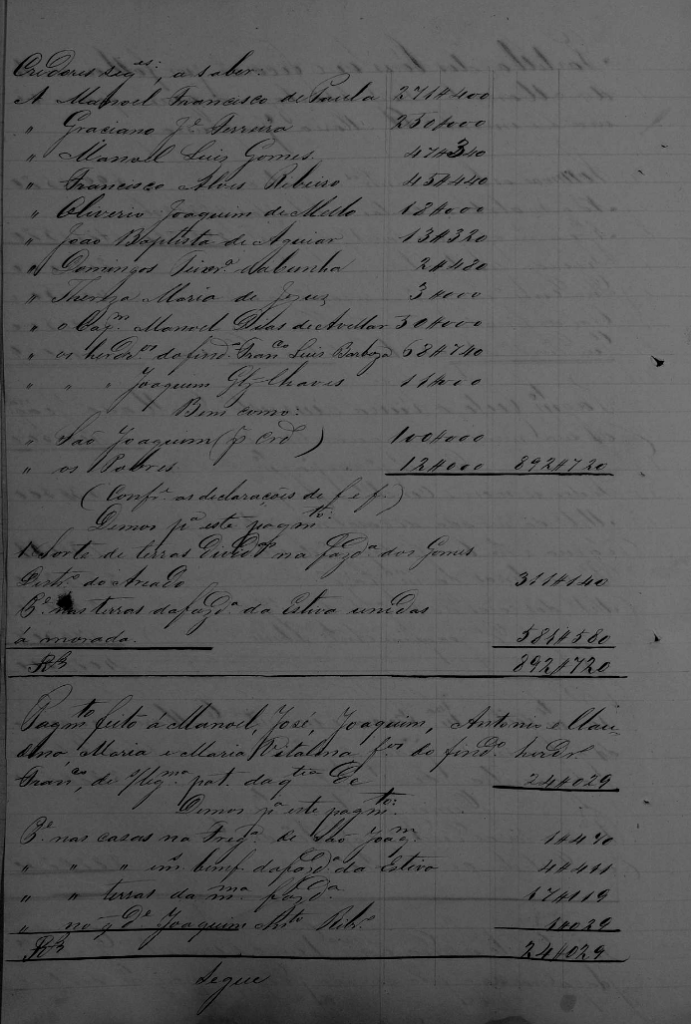 Credores seg.es:, a saber:
A Manoel Francisco de Paula 271#400
" Graciano J.e Ferreira 250#000
" Manoel Luis Gomes. 47#340
" Francisco Alves Ribeiro 45#440
" Oliverio Joaquim de Mello 18#000
" João Baptista de Aguiar 13#320
" Domingos Teixr.a da Cunha 2#480
" Thereza Maria de Jezuz 3#000
" o Cap.m Manoel Dias de Avellar 50#000
" os herdr.os do find.o Fran.co Luis Barboza 68#740
" " " Joaquim Glz Chaves 11#000
Bem como:
" São Joaquim (p 100#000
" os Pobres 12#000 892#720
(Conf.e as declarações de f. e f.)
Demos p.a este pagm.to:
1 Sorte de terras na fazd.a dos Gomes
do Areado 311#140
C.e nas terras da fazd.a da Estiva unidas
á morada. 581#580
R$ 892#720
Pagm.to feito á Manoel, José, Joaquim, Antonio e
Maria e Maria Vitalina f.os do find.o herdr.o
Fran.co, de s/ligm.a pat. da q.tia de 24#029
Demos p.a este pagm.to:
C.e nas casas na Freg.a de São Joaq.m 1#470
" " " em bemf. da fazd.a da Estiva 4#411
" " terras da m.ma fazd.a 17#119
" no q. de Joaquim Ribr.o 1#029
R$ 24#029
Segue